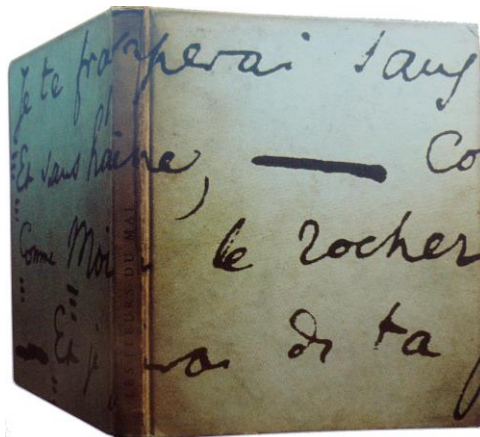 Je te frapperai sans
Et sans haine, — Co
Comme Moïse le rocher
Et de ta
LES FLEURS DU MAL